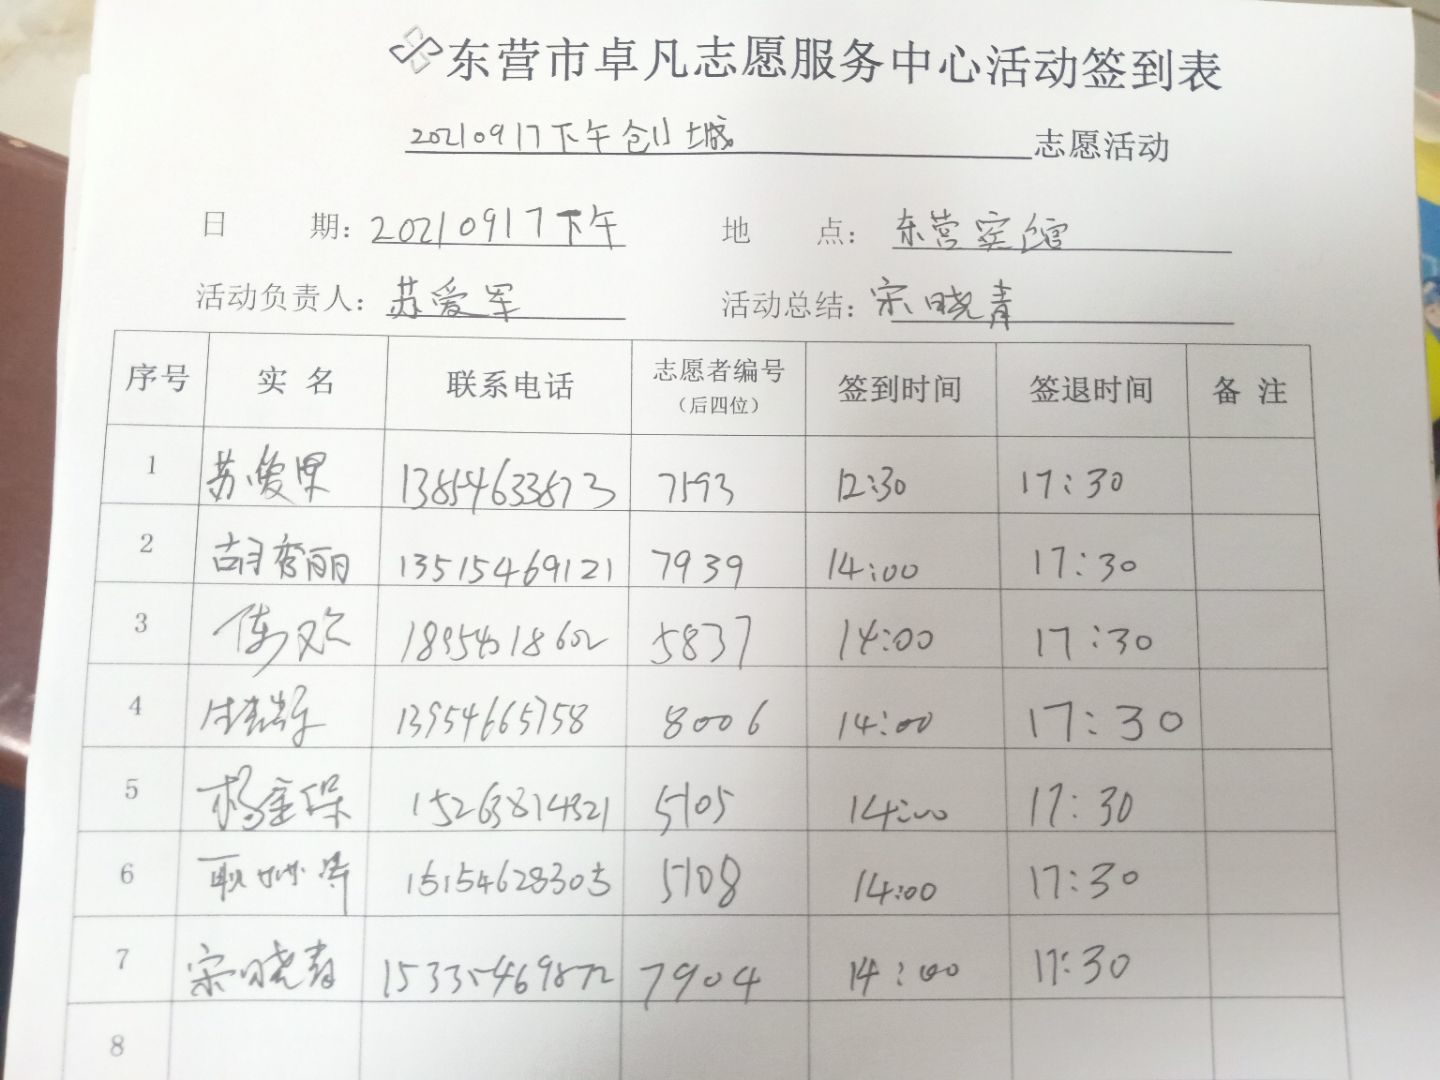 东营市卓凡志愿服务中心活动签到表
20210917下午创城 志愿活动
日 期：20210917下午 地 点：东营宾馆
活动负责人：苏爱军 活动总结：宋晓青
序号 实 名 联系电话 志愿者编号（后四位） 签到时间 签退时间 备 注
1 苏爱军 13854633873 7193 12:30 17:30
2 胡秀丽 13515469121 7939 14:00 17:30
3 陈欢 5837 14:00 17:30
4 13954665758 8006 14:00 17:30
5 杨金保 15263814321 5105 14:00 17:30
6 15154628305 5108 14:00 17:30
7 宋晓青 15335469872 7904 14:00 17:30
8